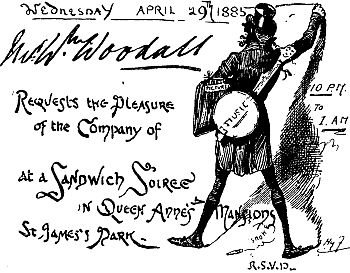 WEDNESDAY APRIL 29th 1885
Mr. Wm Woodall
REQUESTS the PLEASURE
of the COMPANY of
at a SANDWICH SOIREE
IN QUEEN ANNE'S MANSIONS
St. JAMES'S PARK.
10 P.M.
TO
1 A.M
MUSIC
R.S.V.P.